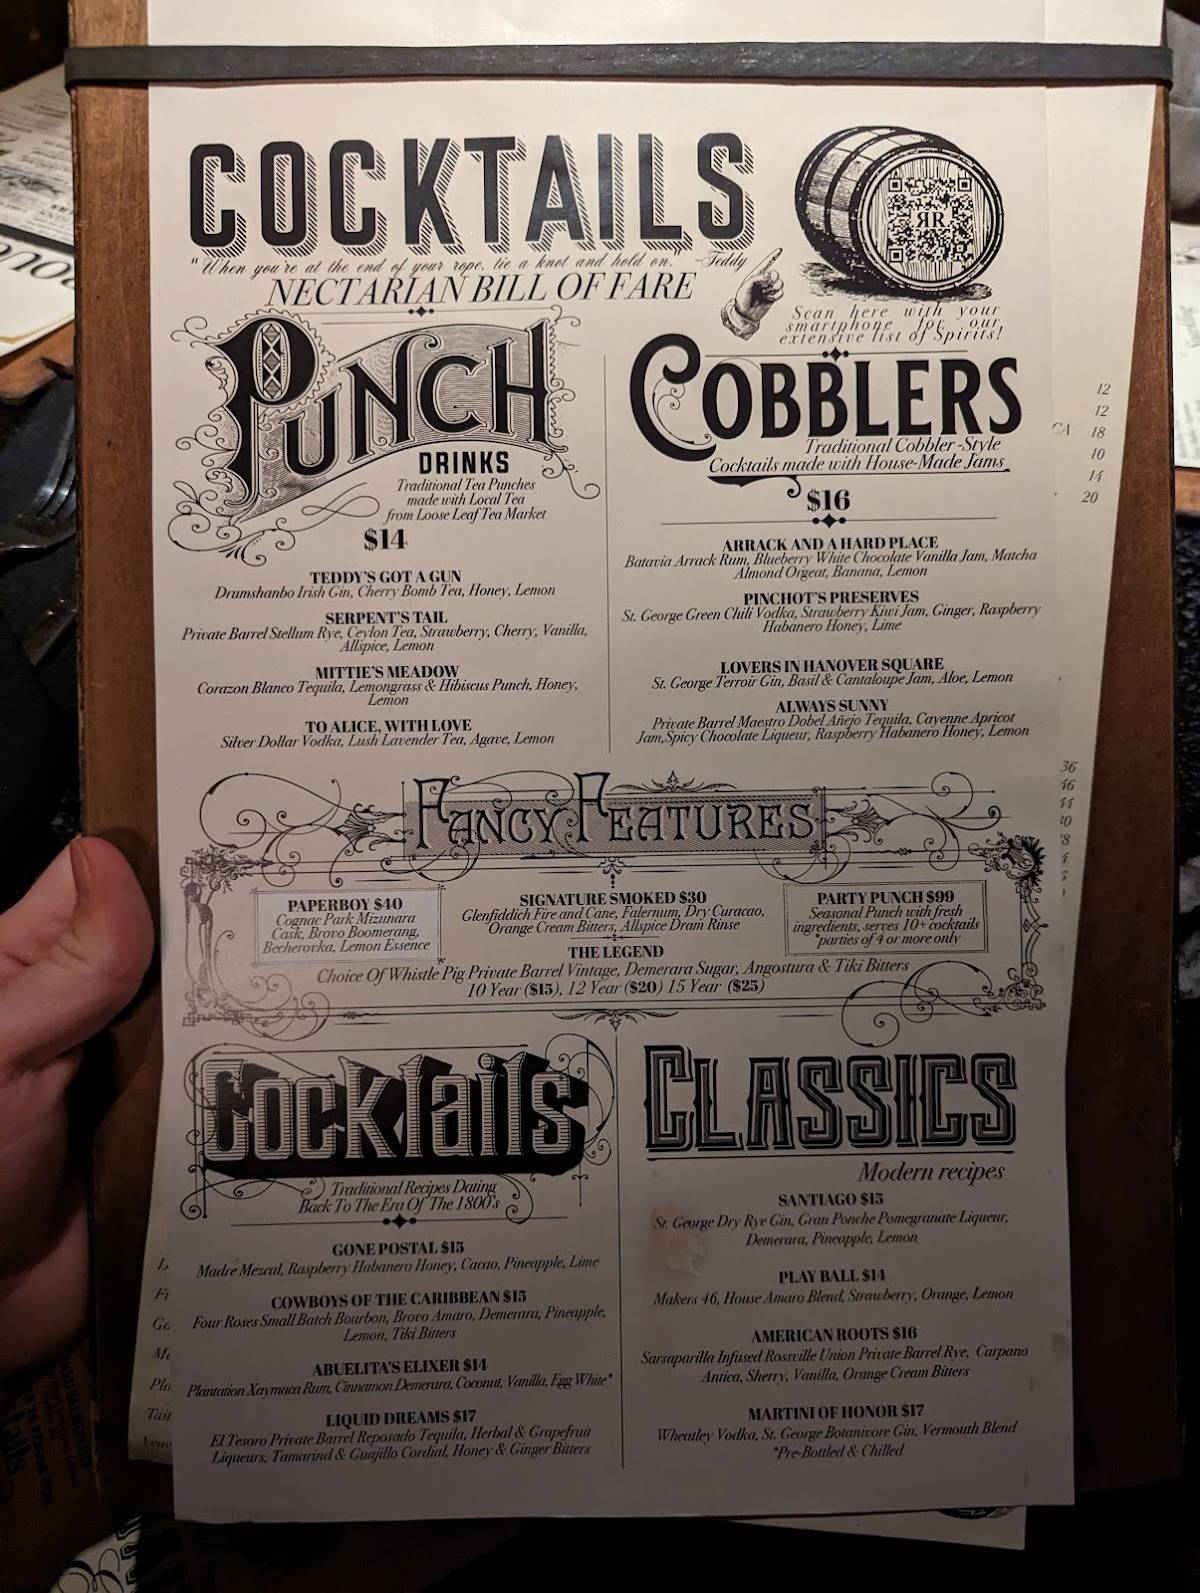 COCKTAILS
"When you're at the end of your rope, tie a knot and hold on." -Teddy
NECTARIAN BILL OF FARE
RR
Scan here with your
smartphone for our
extensive list of Spirits!
PUNCH
DRINKS
Traditional Tea Punches
made with Local Tea
from Loose Leaf Tea Market
$14
TEDDY'S GOT A GUN
Drumshanbo Irish Gin, Cherry Bomb Tea, Honey, Lemon
SERPENT'S TAIL
Private Barrel Stellum Rye, Ceylon Tea, Strawberry, Cherry, Vanilla,
Allspice, Lemon
MITTIE'S MEADOW
Corazon Blanco Tequila, Lemongrass & Hibiscus Punch, Honey,
Lemon
TO ALICE, WITH LOVE
Silver Dollar Vodka, Lush Lavender Tea, Agave, Lemon
COBBLERS
Traditional Cobbler-Style
Cocktails made with House-Made Jams
$16
ARRACK AND A HARD PLACE
Batavia Arrack Rum, Blueberry White Chocolate Vanilla Jam, Matcha
Almond Orgeat, Banana, Lemon
PINCHOT'S PRESERVES
St. George Green Chili Vodka, Strawberry Kiwi Jam, Ginger, Raspberry
Habanero Honey, Lime
LOVERS IN HANOVER SQUARE
St. George Terroir Gin, Basil & Cantaloupe Jam, Aloe, Lemon
ALWAYS SUNNY
Private Barrel Maestro Dobel Añejo Tequila, Cayenne Apricot
Jam,Spicy Chocolate Liqueur, Raspberry Habanero Honey, Lemon
FANCY FEATURES
PAPERBOY $40
Cognac Park Mizunara
Cask, Brovo Boomerang,
Becherovka, Lemon Essence
SIGNATURE SMOKED $30
Glenfiddich Fire and Cane, Falernum, Dry Curacao,
Orange Cream Bitters, Allspice Dram Rinse
PARTY PUNCH $99
Seasonal Punch with fresh
ingredients, serves 10+ cocktails
*parties of 4 or more only
THE LEGEND
Choice Of Whistle Pig Private Barrel Vintage, Demerara Sugar, Angostura & Tiki Bitters
10 Year ($15), 12 Year ($20) 15 Year ($25)
Cocktails
Traditional Recipes Dating
Back To The Era Of The 1800's
GONE POSTAL $15
Madre Mezcal, Raspberry Habanero Honey, Cacao, Pineapple, Lime
COWBOYS OF THE CARIBBEAN $15
Four Roses Small Batch Bourbon, Brovo Amaro, Demerara, Pineapple,
Lemon, Tiki Bitters
ABUELITA'S ELIXER $14
Plantation Xaymaca Rum, Cinnamon Demerara, Coconut, Vanilla, Egg White*
LIQUID DREAMS $17
El Tesoro Private Barrel Reposado Tequila, Herbal & Grapefruit
Liqueurs, Tamarind & Guajillo Cordial, Honey & Ginger Bitters
CLASSICS
Modern recipes
SANTIAGO $15
St. George Dry Rye Gin, Gran Ponche Pomegranate Liqueur,
Demerara, Pineapple, Lemon
PLAY BALL $14
Makers 46, House Amaro Blend, Strawberry, Orange, Lemon
AMERICAN ROOTS $16
Sarsaparilla Infused Rossville Union Private Barrel Rye, Carpano
Antica, Sherry, Vanilla, Orange Cream Bitters
MARTINI OF HONOR $17
Wheatley Vodka, St. George Botanivore Gin, Vermouth Blend
*Pre-Bottled & Chilled
12
12
CA 18
10
14
20
36